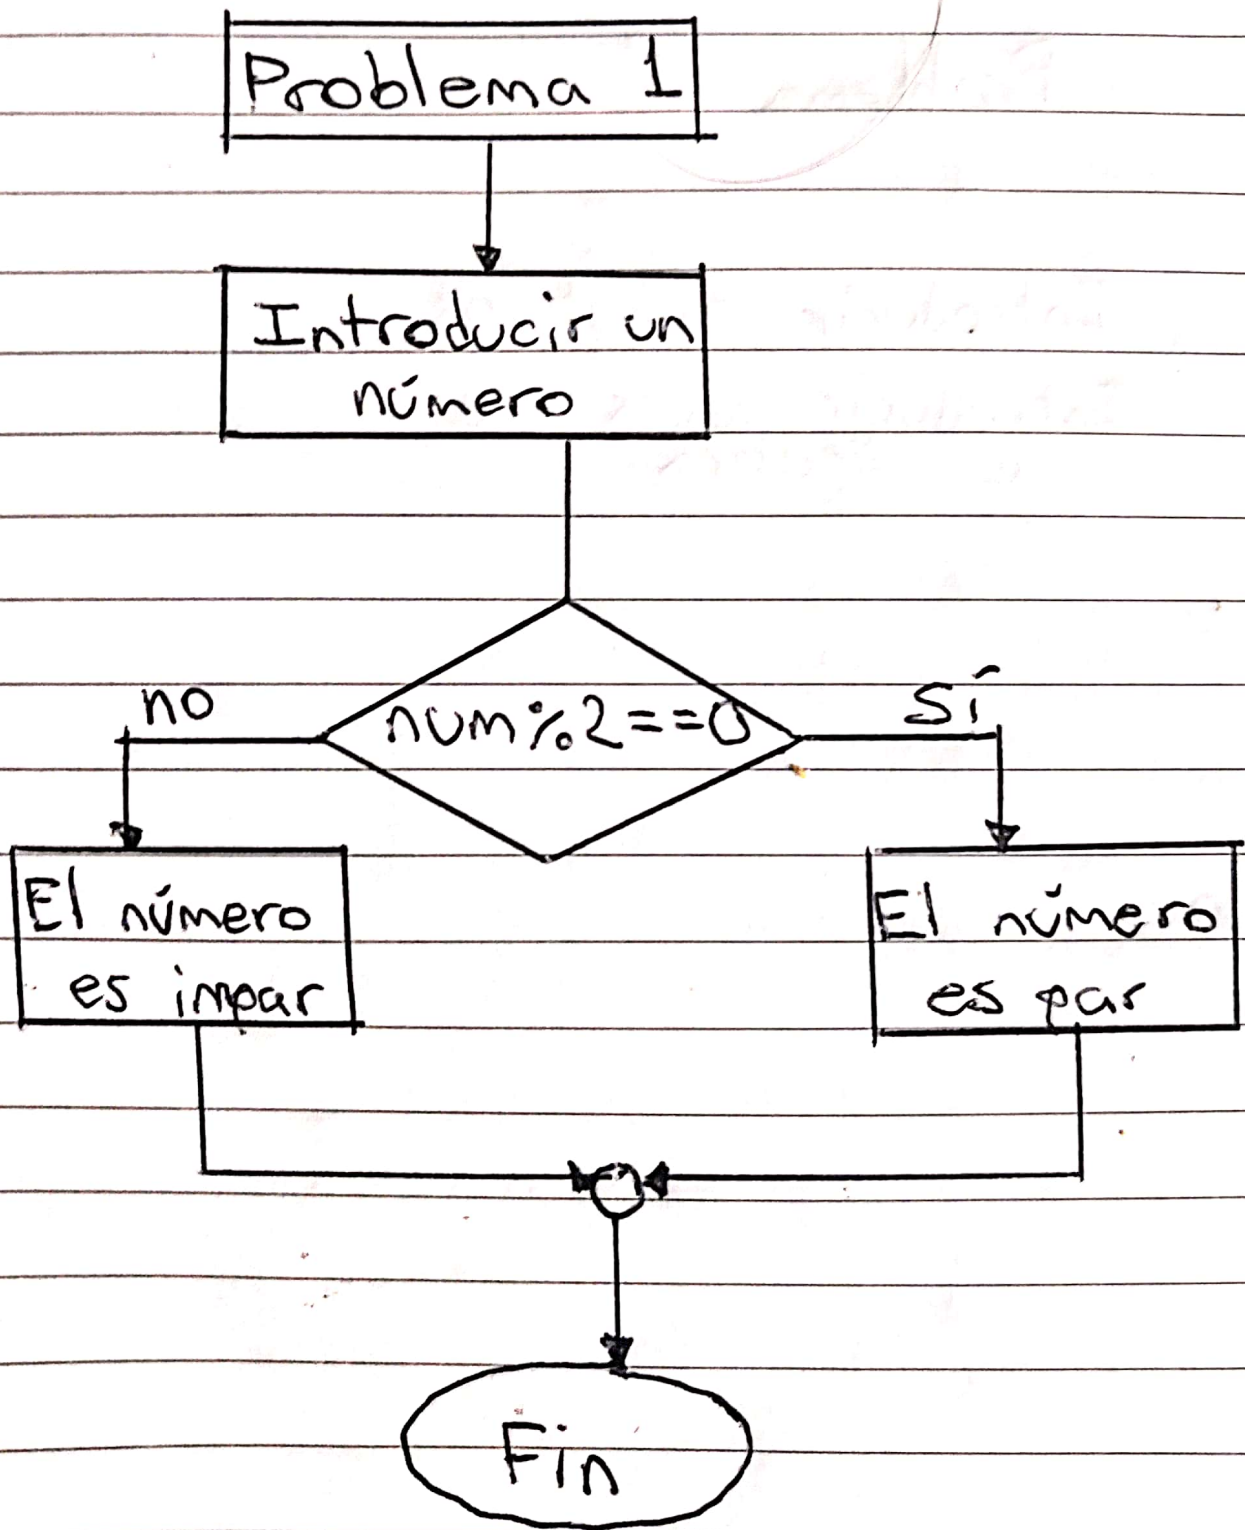 Problema 1
Introducir un
número
num%2==0
no
sí
El número
es impar
El número
es par
Fin